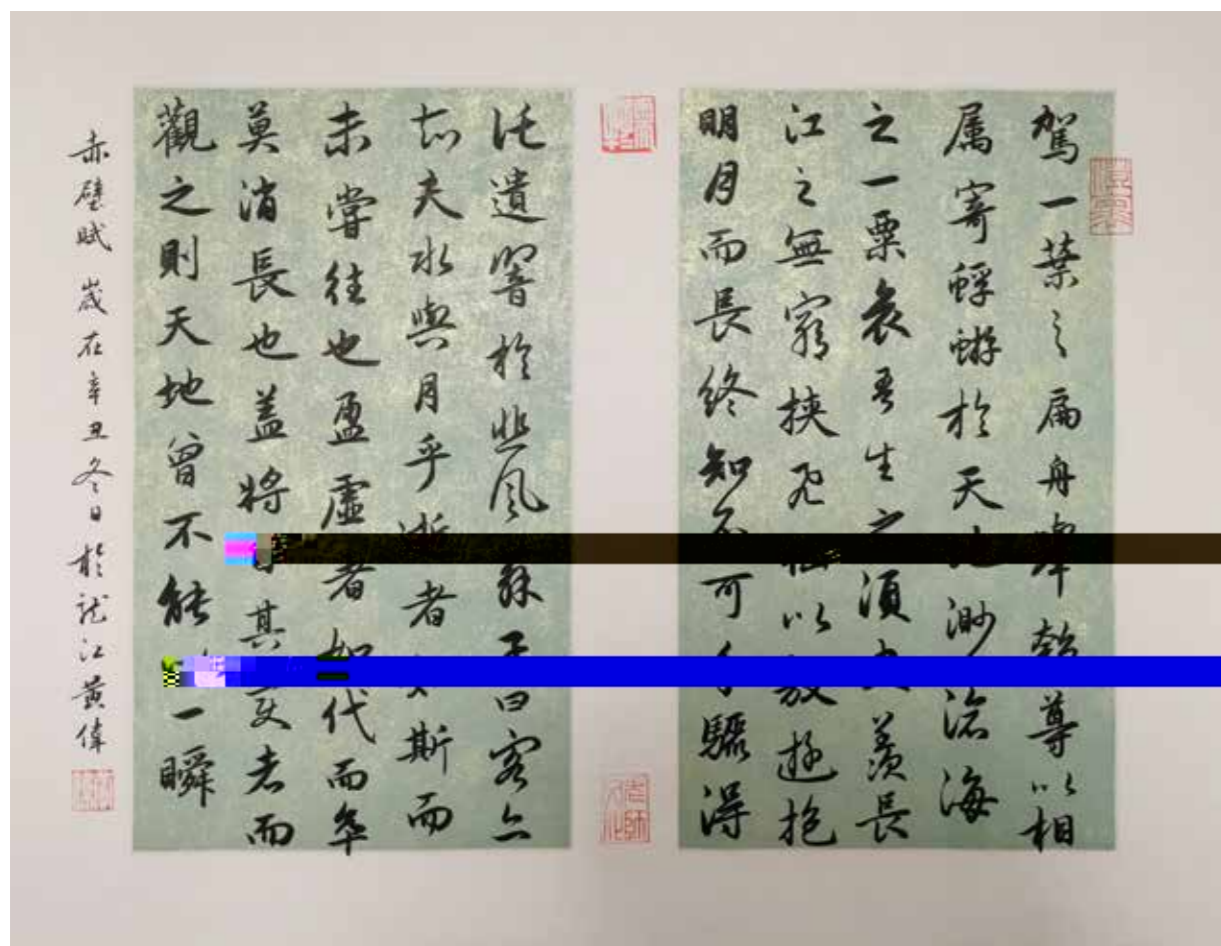 駕一葉之扁舟舉匏尊以相
属寄蜉蝣於天地渺滄海
之一粟哀吾生之須臾羨長
江之無窮挾飛仙以遨遊抱
明月而長終知不可乎驟得
託遺響於悲風蘇子曰客亦
知夫水與月乎逝者如斯而
未嘗往也盈虛者如代而卒
莫消長也盖將其变者而
觀之則天地曾不能一瞬
赤壁賦 歲在辛丑冬日於龍江黄偉